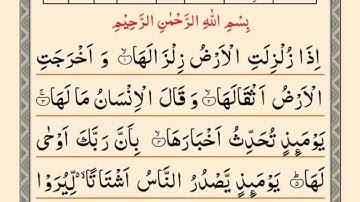 بِسْمِ اللهِ الرَّحْمٰنِ الرَّحِيْمِ
اِذَا زُلْزِلَتِ الْاَرْضُ زِلْزَالَهَا ۙ﴿۱﴾ وَ اَخْرَجَتِ
الْاَرْضُ اَثْقَالَهَا ۙ﴿۲﴾ وَ قَالَ الْاِنْسَانُ مَا لَهَا ۚ﴿۳﴾
يَوْمَىِٕذٍ تُحَدِّثُ اَخْبَارَهَا ۙ﴿۴﴾ بِاَنَّ رَبَّكَ اَوْحٰى
لَهَا ؕ﴿۵﴾ يَوْمَىِٕذٍ يَّصْدُرُ النَّاسُ اَشْتَاتًا ۙ۬ لِّيُرَوْا